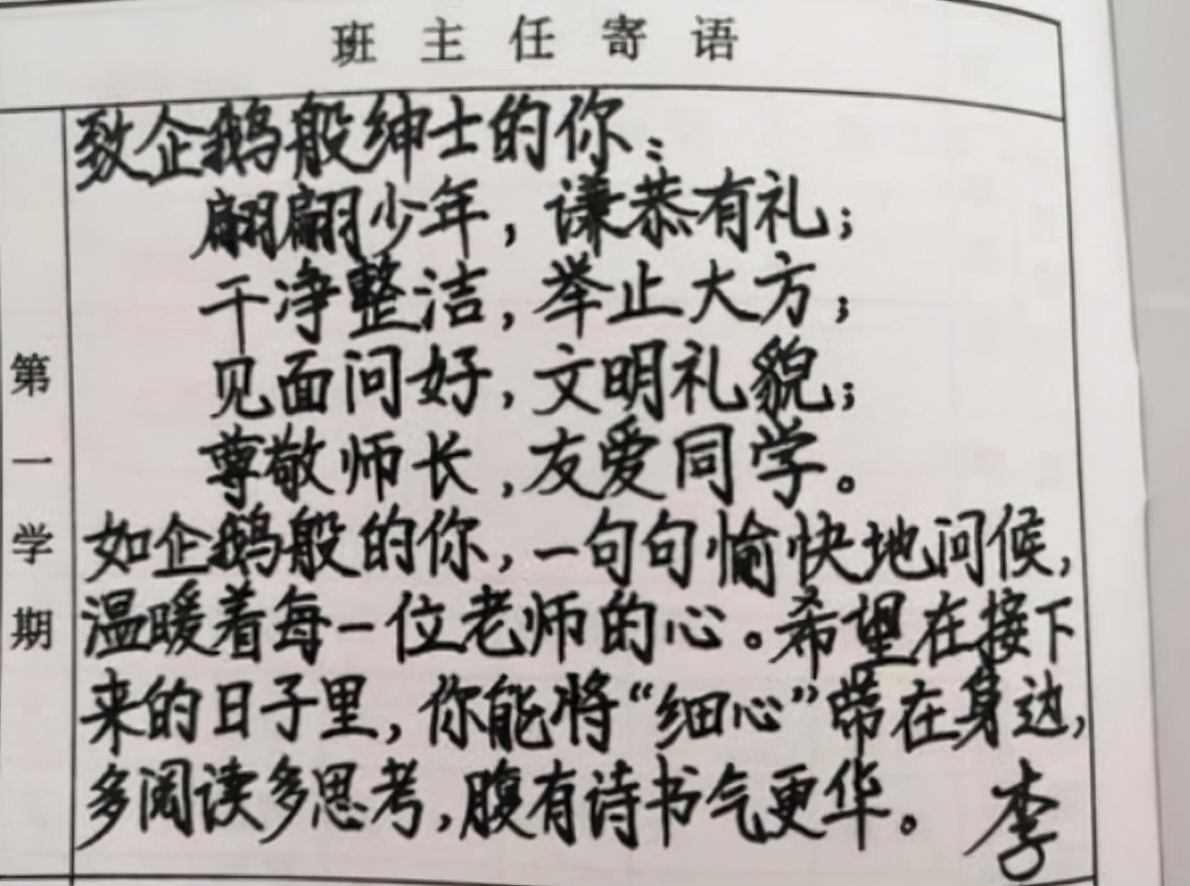 班主任寄语
第一学期
致企鹅般绅士的你：
翩翩少年，谦恭有礼；
干净整洁，举止大方；
见面问好，文明礼貌；
尊敬师长，友爱同学。
如企鹅般的你，一句句愉快地问候，
温暖着每一位老师的心。希望在接下
来的日子里，你能将“细心”带在身边，
多阅读多思考，腹有诗书气更华。 李